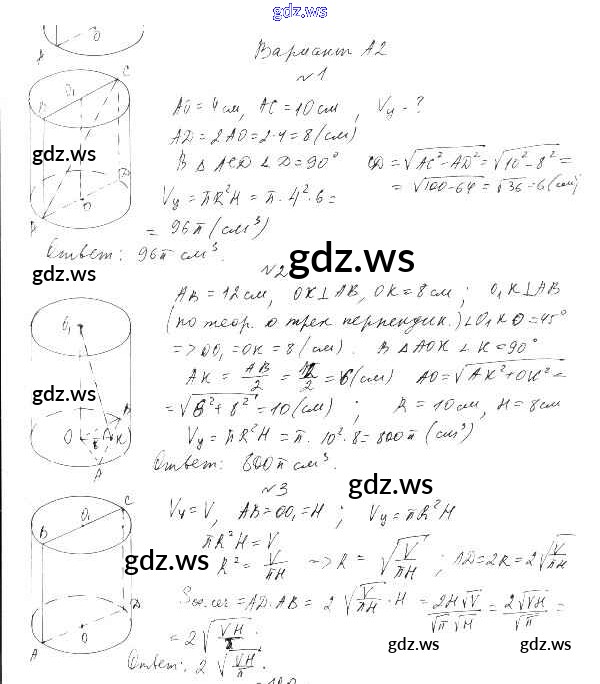 gdz.ws
Вариант А2
№1
AO = 4 см, AC = 10 см, Vц - ?
AD = 2AO = 2·4 = 8 (см)
gdz.ws
В △ ACD ∠D = 90° CD = √(AC² - AD²) = √(10² - 8²) =
= √(100 - 64) = √36 = 6 (см)
Vц = πR²H = π·4²·6 =
= 96π (см³)
Ответ: 96π см³.
gdz.ws
№2
gdz.ws
AB = 12 см, OK ⊥ AB, OK = 8 см; O₁K ⊥ AB
(по теор. о трех перпендик.) ∠O₁KO = 45°
=> OO₁ = OK = 8 (см). В △ AOK ∠K = 90°
AK = AB/2 = 12/2 = 6 (см) AO = √(AK² + OK²) =
gdz.ws
= √(6² + 8²) = 10 (см); R = 10 см, H = 8 см
Vц = πR²H = π·10²·8 = 800π (см³)
Ответ: 800π см³.
№3
gdz.ws
Vц = V, AB = OO₁ = H; Vц = πR²H
πR²H = V
gdz.ws
R² = V/πH => R = √(V/πH); AD = 2R = 2√(V/πH)
Sос.сеч = AD·AB = 2√(V/πH)·H = 2H√V/√π√H = 2√VH/√π =
= 2√(VH/π).
gdz.ws
gdz.ws
Ответ: 2√(VH/π).